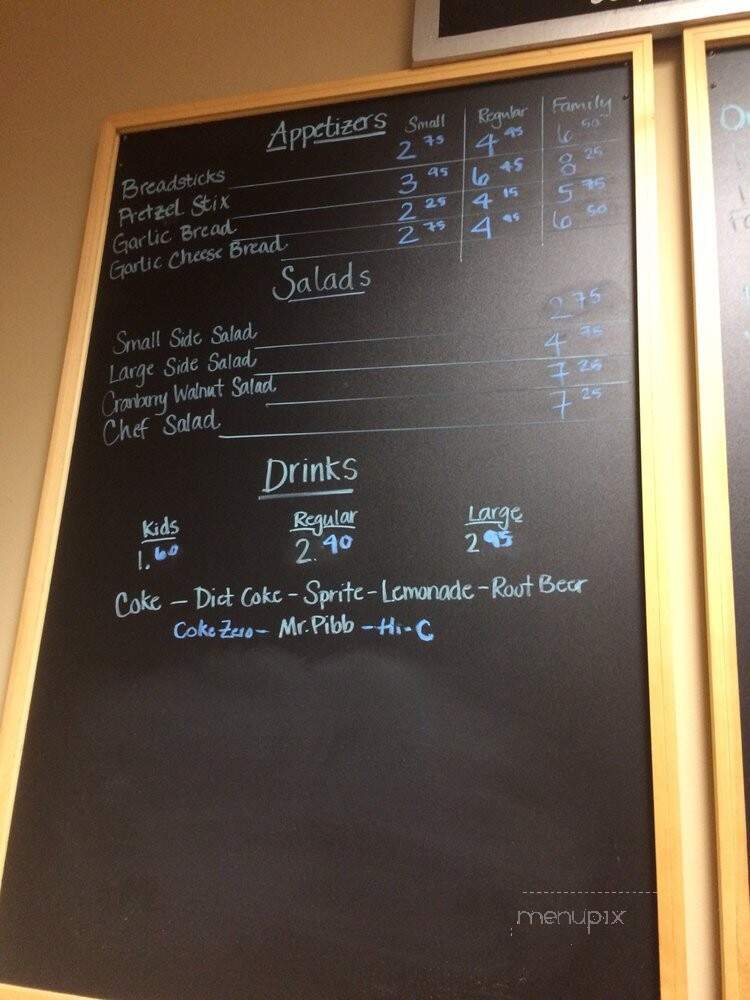 Appetizers Small Regular Family
Breadsticks 2 75 4 95 6 50
Pretzel Stix 3 95 6 45 8 25
Garlic Bread 2 25 4 15 5 75
Garlic Cheese Bread 2 75 4 95 6 50
Salads
Small Side Salad 2 75
Large Side Salad 4 75
Cranberry Walnut Salad 7 25
Chef Salad 7 25
Drinks
Kids Regular Large
1.60 2.90 2 95
Coke - Diet Coke - Sprite - Lemonade - Root Beer
Coke Zero - Mr. Pibb - Hi-C
menupix